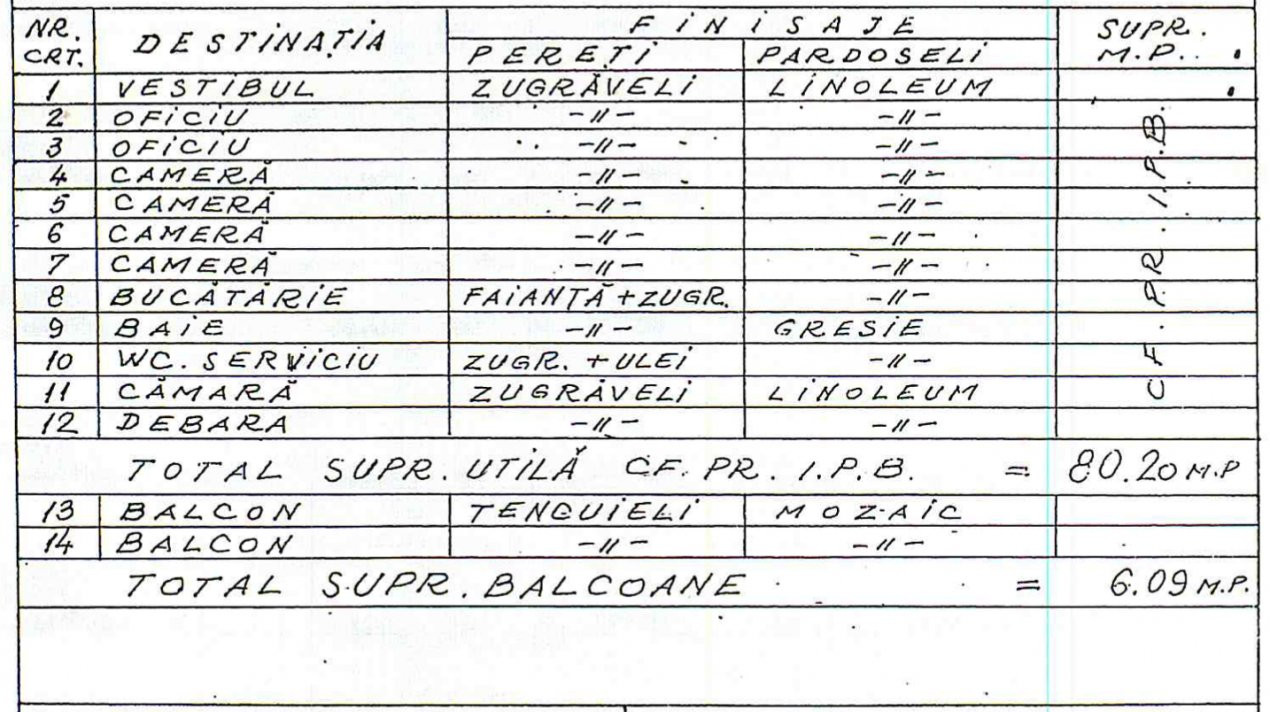 NR. CRT. DESTINAȚIA FINISAJE SUPR. M.P.
PEREȚI PARDOSELI
1 VESTIBUL ZUGRĂVELI LINOLEUM
2 OFICIU -〃- -〃-
3 OFICIU -〃- -〃-
4 CAMERĂ -〃- -〃-
5 CAMERĂ -〃- -〃-
6 CAMERĂ -〃- -〃-
7 CAMERĂ -〃- -〃-
8 BUCĂTĂRIE FAIANȚĂ + ZUGR. -〃-
9 BAIE -〃- GRESIE
10 WC. SERVICIU ZUGR. + ULEI -〃-
11 CĂMARĂ ZUGRĂVELI LINOLEUM
12 DEBARA -〃- -〃-
CF. PR. I.P.B.
TOTAL SUPR. UTILĂ CF. PR. I.P.B. = 80.20 M.P
13 BALCON TENCUIELI MOZAIC
14 BALCON -〃- -〃-
TOTAL SUPR. BALCOANE = 6.09 M.P.